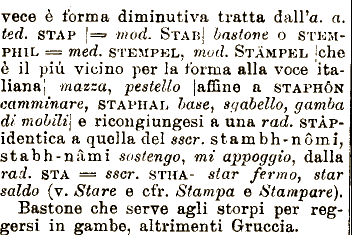 vece è forma diminutiva tratta dall'a. a.
ted. STAP |= mod. STAB| bastone o STEM-
PHIL = med. STEMPEL, mod. STÄMPEL |che
è il più vicino per la forma alla voce ita-
liana| mazza, pestello |affine a STAPHÔN
camminare, STAPHAL base, sgabello, gamba
di mobili| e ricongiungesi a una rad. STÂP-
identica a quella del sscr. stambh-nômi,
stabh-nâmi sostengo, mi appoggio, dalla
rad. STA = sscr. STHA- star fermo, star
saldo (v. Stare e cfr. Stampa e Stampare).
Bastone che serve agli storpi per reg-
gersi in gambe, altrimenti Gruccia.